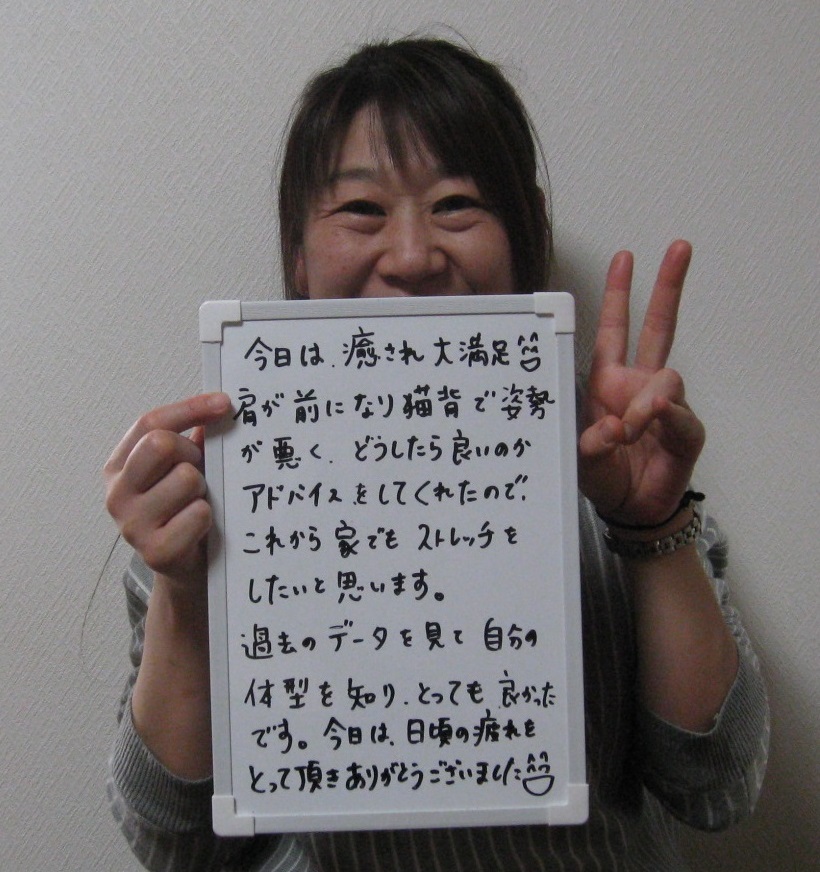 今日は、癒され大満足
肩が前になり猫背で姿勢
が悪く、どうしたら良いのか
アドバイスをしてくれたので、
これから家でもストレッチを
したいと思います。
過去のデータを見て自分の
体型を知り、とっても良かった
です。今日は、日頃の疲れを
とって頂きありがとうございました